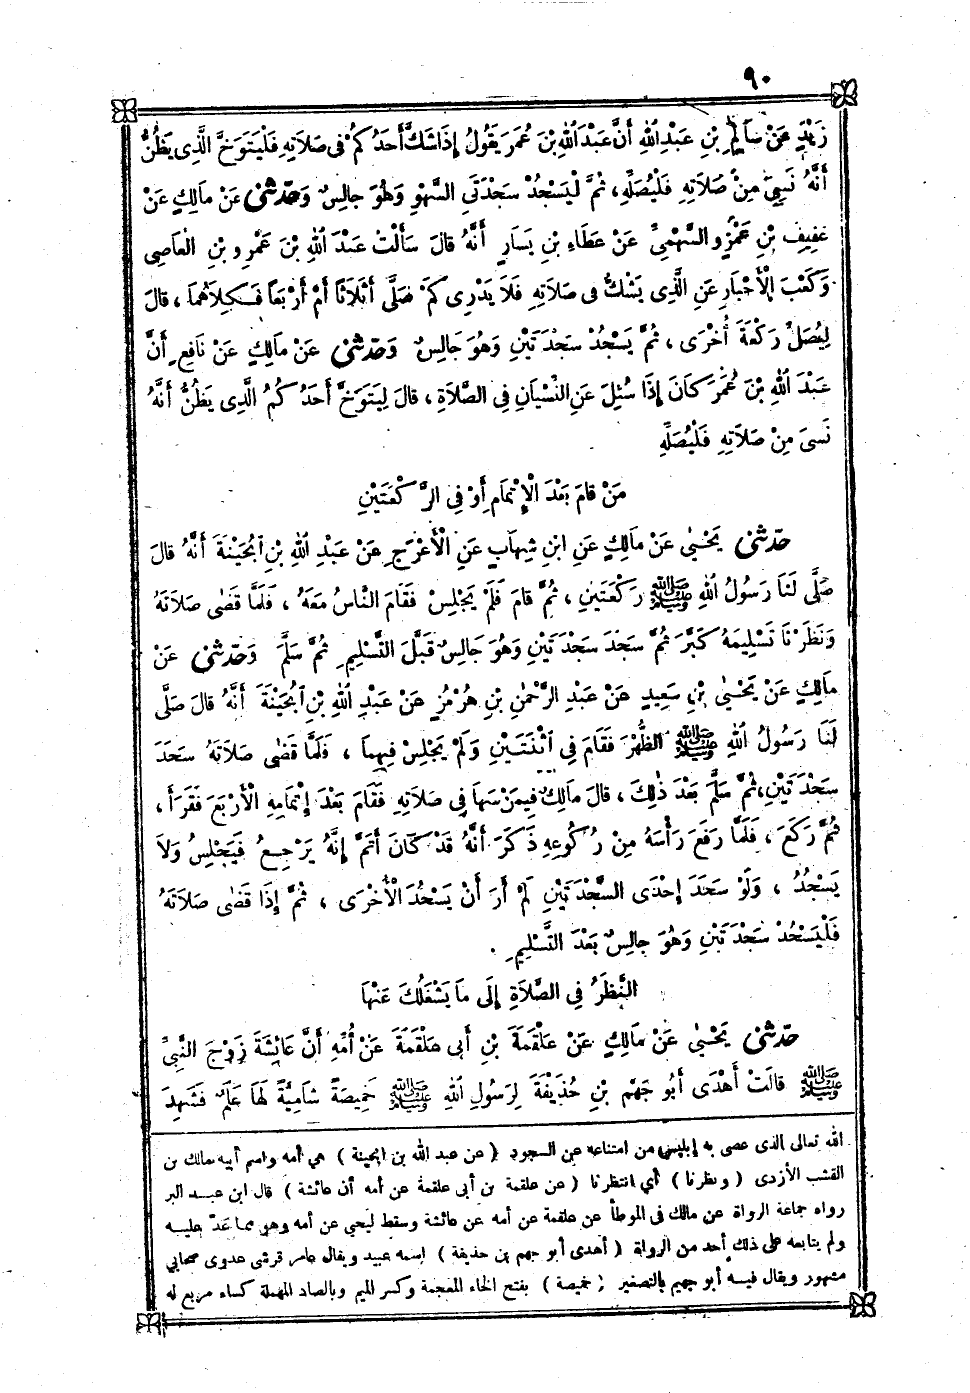 ٩٠
زَيْدٍ عَنْ سَالِمِ بْنِ عَبْدِ اللهِ أَنَّ عَبْدَ اللهِ بْنَ عُمَرَ يَقُولُ إِذَا شَكَّ أَحَدُكُمْ فِى صَلَاتِهِ فَلْيَتَوَخَّ الَّذِى يَظُنُّ
أَنَّهُ نَسِىَ مِنْ صَلَاتِهِ فَلْيُصَلِّهِ، ثُمَّ لْيَسْجُدْ سَجْدَتَىِ السَّهْوِ وَهُوَ جَالِسٌ وَحَدَّثَنِى عَنْ مَالِكٍ عَنْ
عَفِيفِ بْنِ عَمْرٍو السَّهْمِىِّ عَنْ عَطَاءِ بْنِ يَسَارٍ أَنَّهُ قَالَ سَأَلْتُ عَبْدَ اللهِ بْنَ عَمْرِو بْنِ الْعَاصِى
وَكَعْبَ الْأَحْبَارِ عَنِ الَّذِى يَشُكُّ فِى صَلَاتِهِ فَلَا يَدْرِى كَمْ صَلَّى أَثَلَاثًا أَمْ أَرْبَعًا فَكِلَاهُمَا، قَالَ
لِيُصَلِّ رَكْعَةً أُخْرَى، ثُمَّ يَسْجُدْ سَجْدَتَيْنِ وَهُوَ جَالِسٌ وَحَدَّثَنِى عَنْ مَالِكٍ عَنْ نَافِعٍ أَنَّ
عَبْدَ اللهِ بْنَ عُمَرَ كَانَ إِذَا سُئِلَ عَنِ النِّسْيَانِ فِى الصَّلَاةِ، قَالَ لِيَتَوَخَّ أَحَدُكُمُ الَّذِى يَظُنُّ أَنَّهُ
نَسِىَ مِنْ صَلَاتِهِ فَلْيُصَلِّهِ
مَنْ قَامَ بَعْدَ الْإِتْمَامِ أَوْ فِى الرَّكْعَتَيْنِ
حَدَّثَنِى يَحْيَى عَنْ مَالِكٍ عَنِ ابْنِ شِهَابٍ عَنِ الْأَعْرَجِ عَنْ عَبْدِ اللهِ بْنِ بُحَيْنَةَ أَنَّهُ قَالَ
صَلَّى لَنَا رَسُولُ اللهِ ﷺ رَكْعَتَيْنِ، ثُمَّ قَامَ فَلَمْ يَجْلِسْ فَقَامَ النَّاسُ مَعَهُ، فَلَمَّا قَضَى صَلَاتَهُ
وَنَظَرْنَا تَسْلِيمَهُ كَبَّرَ ثُمَّ سَجَدَ سَجْدَتَيْنِ وَهُوَ جَالِسٌ قَبْلَ التَّسْلِيمِ ثُمَّ سَلَّمَ وَحَدَّثَنِى عَنْ
مَالِكٍ عَنْ يَحْيَى بْنِ سَعِيدٍ عَنْ عَبْدِ الرَّحْمَنِ بْنِ هُرْمُزٍ عَنْ عَبْدِ اللهِ بْنِ بُحَيْنَةَ أَنَّهُ قَالَ صَلَّى
لَنَا رَسُولُ اللهِ ﷺ الظُّهْرَ فَقَامَ فِى اثْنَتَيْنِ وَلَمْ يَجْلِسْ فِيهِمَا، فَلَمَّا قَضَى صَلَاتَهُ سَجَدَ
سَجْدَتَيْنِ، ثُمَّ سَلَّمَ بَعْدَ ذَلِكَ، قَالَ مَالِكٌ فِيمَنْ سَهَا فِى صَلَاتِهِ فَقَامَ بَعْدَ إِتْمَامِهِ الْأَرْبَعَ فَقَرَأَ،
ثُمَّ رَكَعَ، فَلَمَّا رَفَعَ رَأْسَهُ مِنْ رُكُوعِهِ ذَكَرَ أَنَّهُ قَدْ كَانَ أَتَمَّ إِنَّهُ يَرْجِعُ فَيَجْلِسُ وَلَا
يَسْجُدُ، وَلَوْ سَجَدَ إِحْدَى السَّجْدَتَيْنِ لَمْ أَرَ أَنْ يَسْجُدَ الْأُخْرَى، ثُمَّ إِذَا قَضَى صَلَاتَهُ
فَلْيَسْجُدْ سَجْدَتَيْنِ وَهُوَ جَالِسٌ بَعْدَ التَّسْلِيمِ.
النَّظَرُ فِى الصَّلَاةِ إِلَى مَا يَشْغَلُكَ عَنْهَا
حَدَّثَنِى يَحْيَى عَنْ مَالِكٍ عَنْ عَلْقَمَةَ بْنِ أَبِى عَلْقَمَةَ عَنْ أُمِّهِ أَنَّ عَائِشَةَ زَوْجَ النَّبِىِّ
ﷺ قَالَتْ أَهْدَى أَبُو جَهْمِ بْنِ حُذَيْفَةَ لِرَسُولِ اللهِ ﷺ خَمِيصَةً شَامِيَّةً لَهَا عَلَمٌ فَشَهِدَ
الله تعالى الذى عصى به إبليس من امتناعه عن السجود (عن عبد الله بن بحينة) هي أمه واسم أبيه مالك بن
القشب الأزدى (ونظرنا) أي انتظرنا (عن علقمة بن أبى علقمة عن أمه أن عائشة) قال ابن عبد البر
رواه جماعة الرواة عن مالك فى الموطأ عن علقمة عن أمه عن عائشة وسقط ليحي عن أمه وهو مما عد عليه
ولم يتابعه على ذلك أحد من الرواة (أهدى أبو جهم بن حذيفة) اسمه عبيد ويقال عامر قرشى عدوى صحابي
مشهور ويقال فيه أبو جهيم بالتصغير (خميصة) بفتح الخاء المعجمة وكسر الميم وبالصاد المهملة كساء مربع له